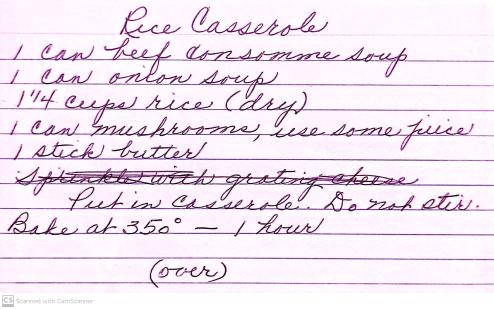 Rice Casserole
1 can beef consomme soup
1 can onion soup
1 1/4 cups rice (dry)
1 can mushrooms, use some juice
1 stick butter
Sprinkle with grating cheese
Put in casserole. Do not stir.
Bake at 350° — 1 hour
(over)
CS Scanned with CamScanner